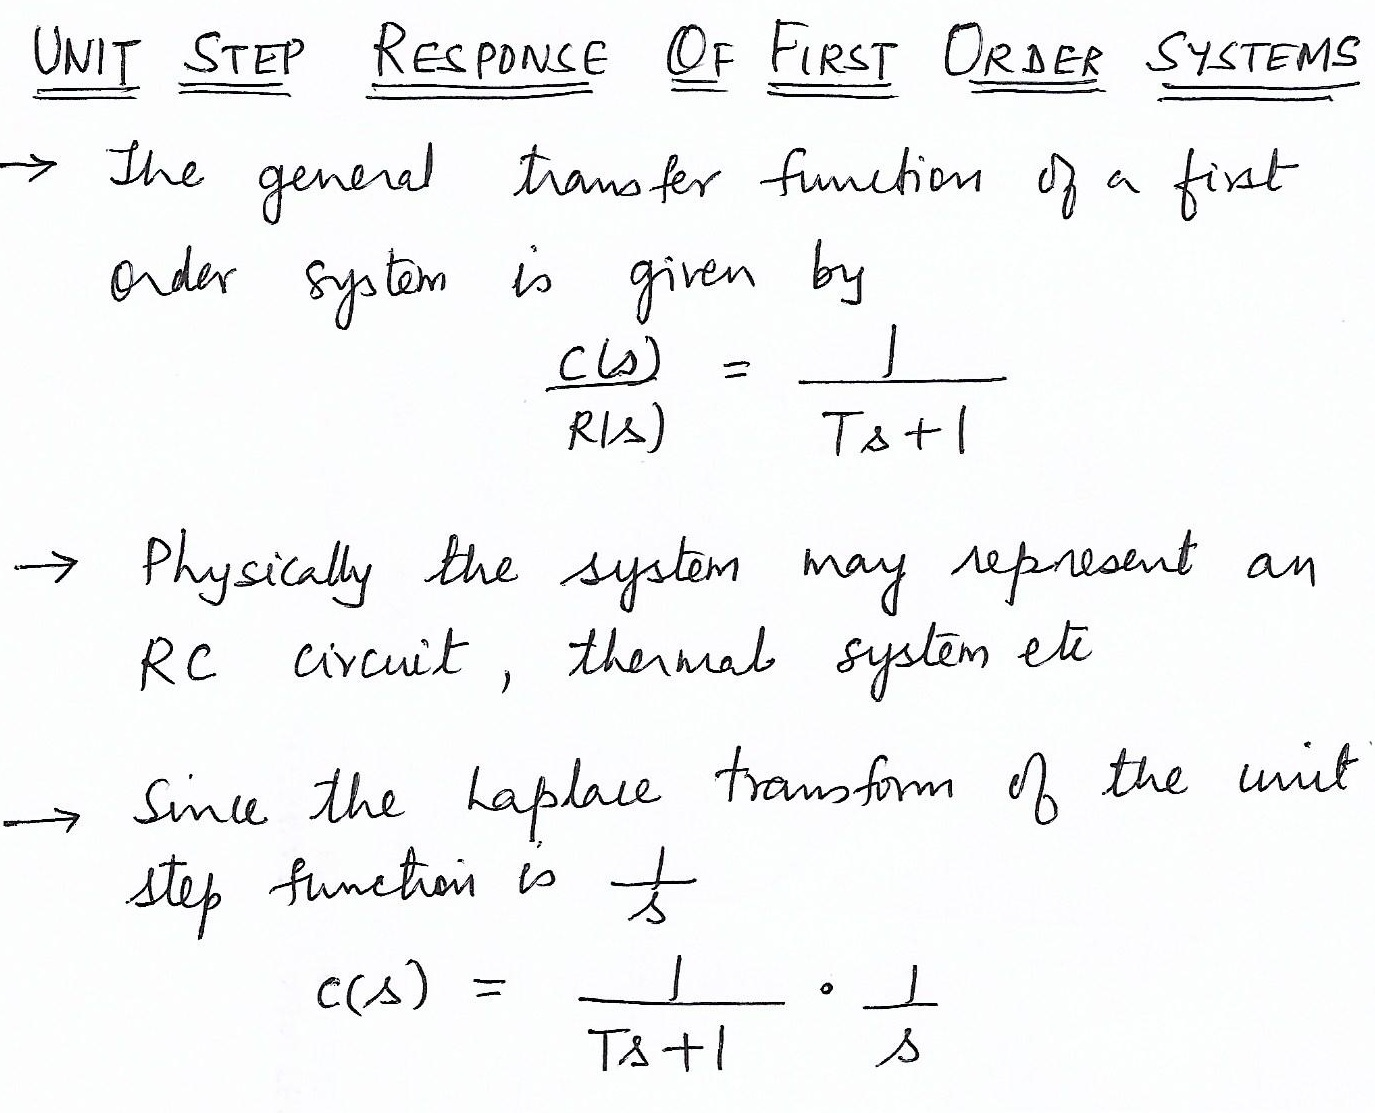 UNIT STEP RESPONSE OF FIRST ORDER SYSTEMS
→ The general transfer function of a first
order system is given by
C(s)/R(s) = 1/(Ts+1)
→ Physically the system may represent an
RC circuit, thermal system etc
→ Since the Laplace transform of the unit
step function is 1/s
C(s) = 1/(Ts+1) · 1/s